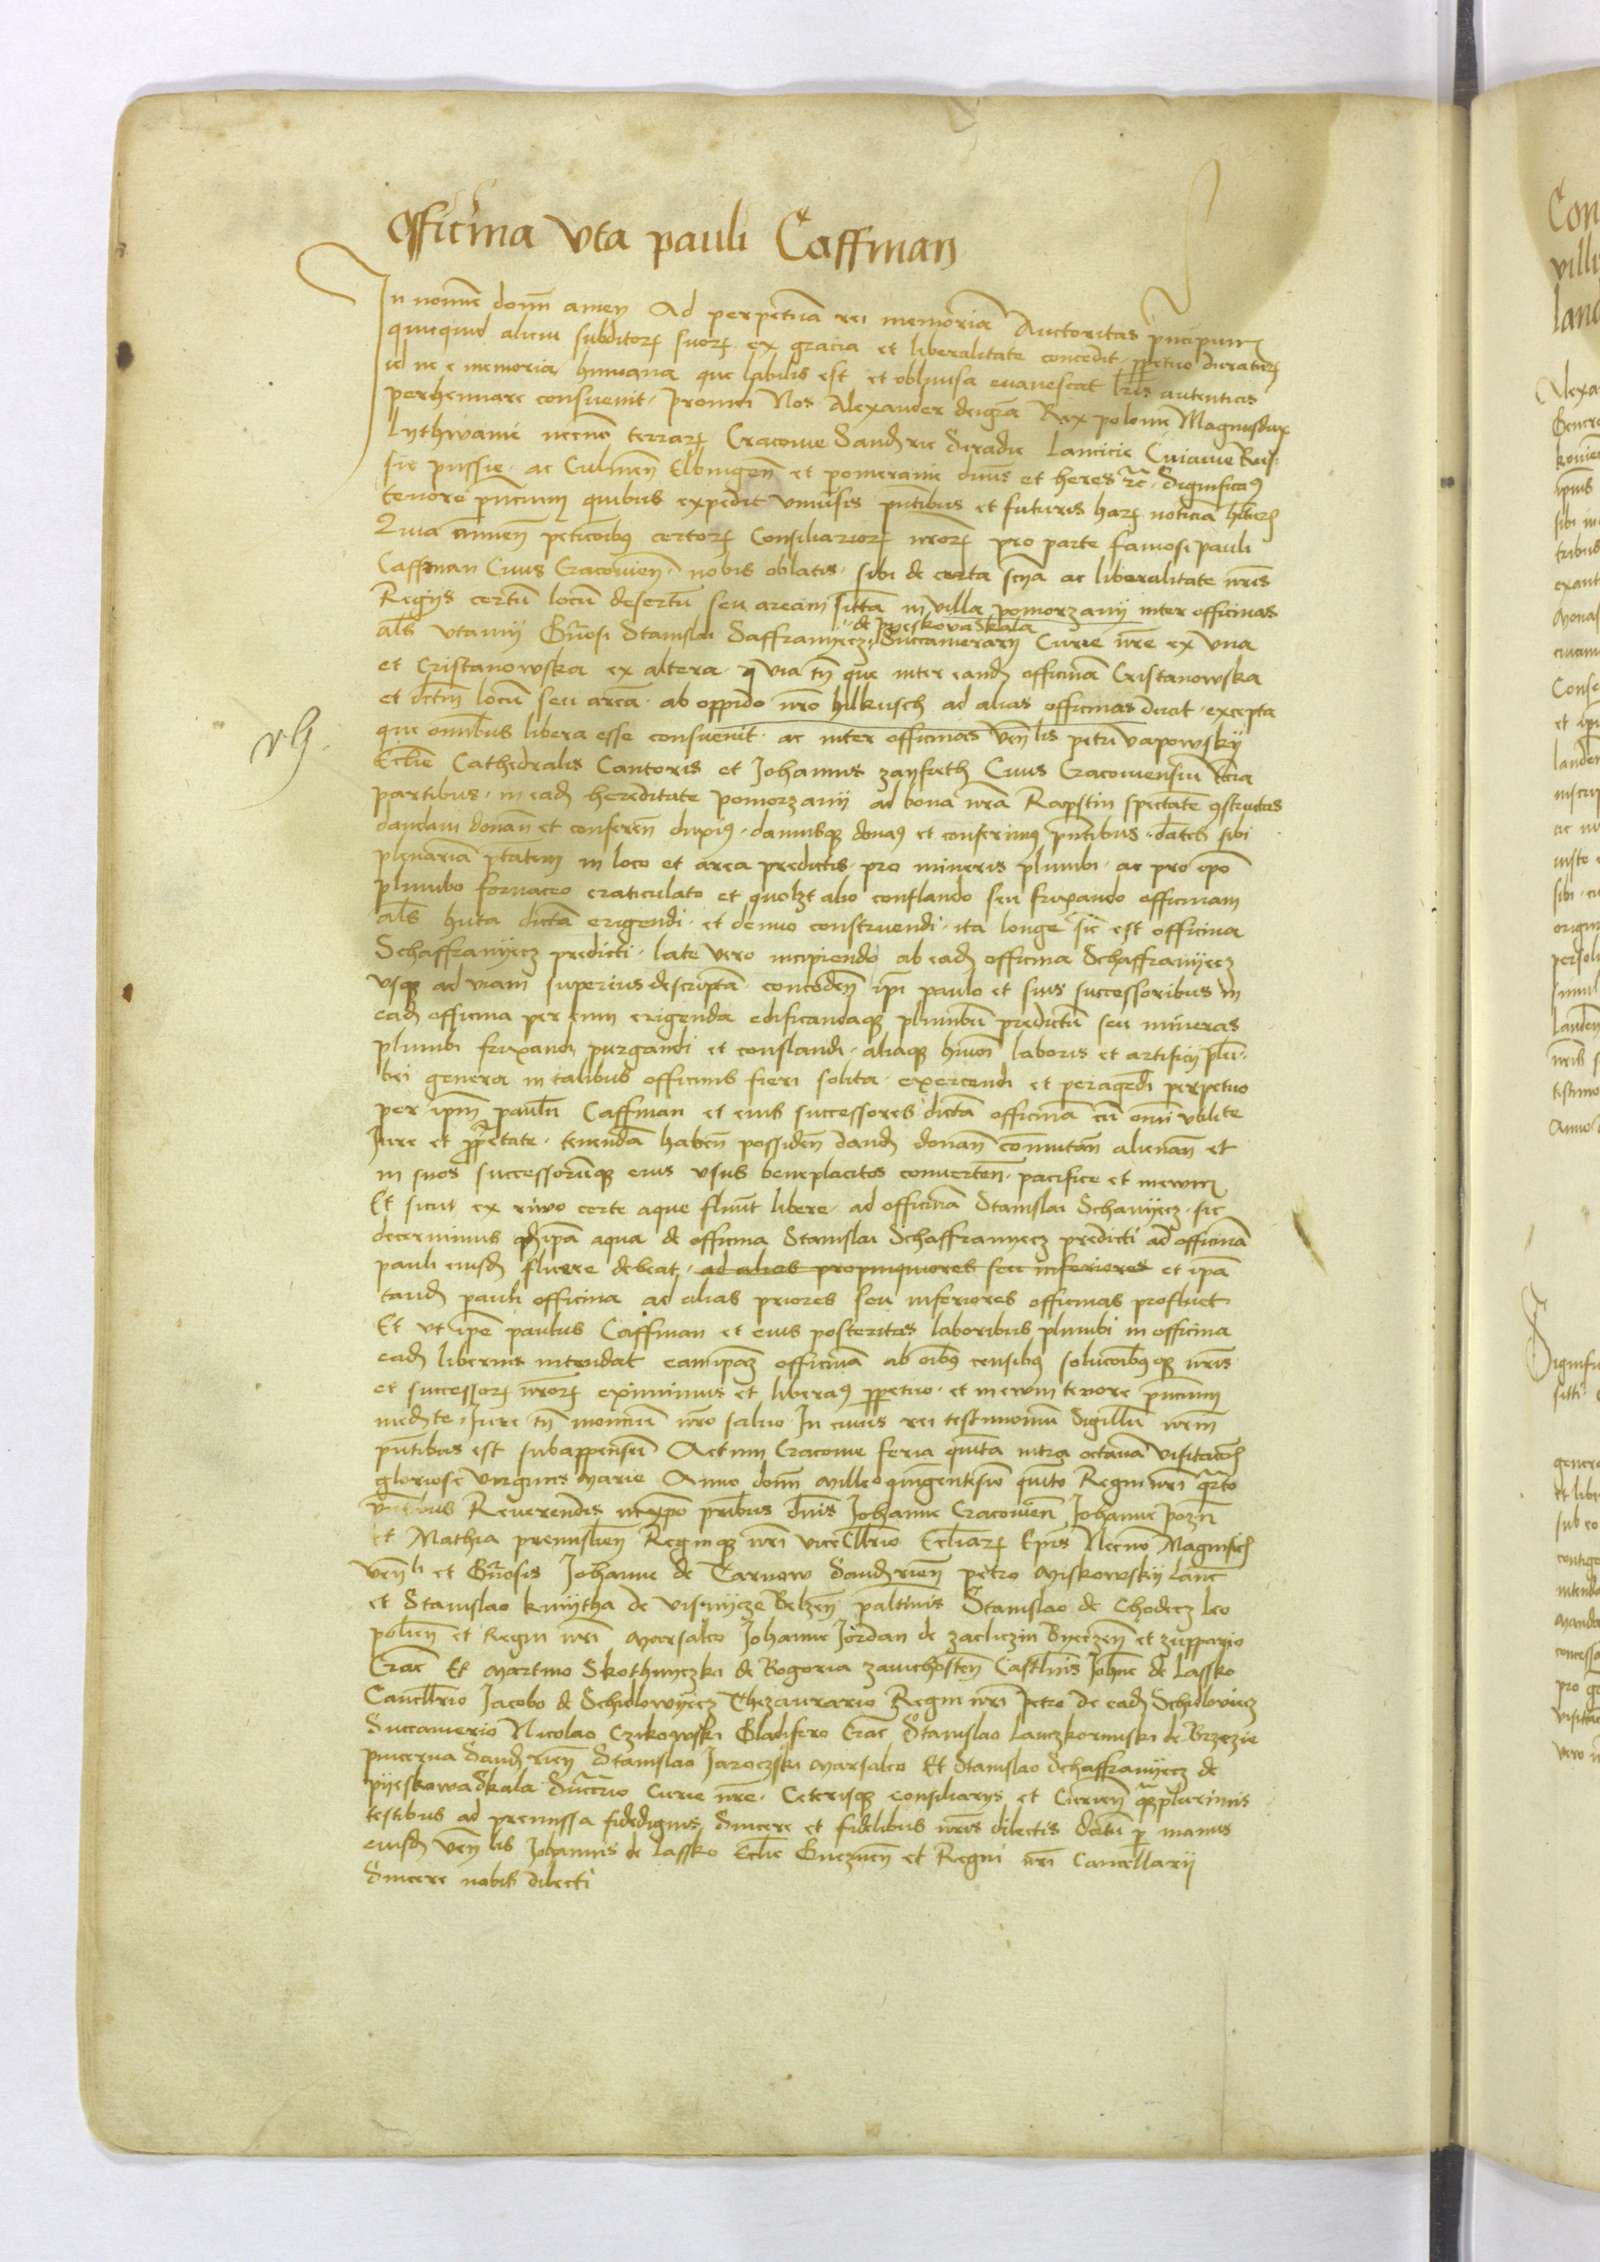 Officina Uta pauli Caffman
In nomine domini amen Ad perpetuam rei memoriam Auctoritas principum
quicquid alicui subditorum suorum ex gracia et liberalitate concedit perpetuo duraturum
id ne e memoria humana que labilis est et obliuisa euanescat literis autenticis
perhennare consueuit. Proinde Nos Alexander dei gracia Rex polonie Magnusdux
lythwanie necnon terrarum Cracouie Sandomirie Siradie Lancicie Cuiauie Rus-
sie prussie. ac Culmen Elbingen et pomeranie dominus et heres etc. Significamus
tenore presencium quibus expedit vniuersis presentibus et futuris harum noticiam habituris
Quia peticionibus certorum Consiliariorum nostrorum pro parte famosi pauli
Caffman Ciuis Cracouien. nobis oblatis. sibi de certa sciencia ac liberalitate nostris
Regijs certum locum desertum seu aream sittam in villa pomorzany inter officinas
als vtamy Generosi Stanislai Saffranyecz de Pyeskowa Skala Succamerarij Curie nostre ex vna
et Cristanowska ex altera. via tamen que inter eandem officinam Cristanowska
et dictum locum seu aream. ab oppido nostro hilkusch ad alias officinas ducit. excepta
que omnibus libera esse consueuit. ac inter officinas venerabilis petri vapowsky
Ecclesie Cathedralis Cantoris et Johannis zayfreth Ciuis Cracouiensium
partibus. in eadem hereditate pomorzany ad bona nostra Rapstin spectante constructas
dandam donandam et conferendam duximus. damusque donamus et conferimus presentibus. dantes sibi
plenariam potestatem in loco et area predictis. pro mineris plumbi. ac pro
plumbo fornaceo craticulato et quolibet alio conflando seu frixando officinam
als huta dictam erigendi. et denuo construendi. ita longe sic est officina
Schaffranyecz predicti. late vero incipiendo ab eadem officina Schaffranyecz
vsque ad viam superius descriptam. concedentes ipsi paulo et suis successoribus in
eadem officina per eum erigenda edificandaque plumbum predictum seu mineras
plumbi frixandi purgandi et conflandi. aliaque huiusmodi laboris et artificij plum-
bei genera in talibus officinis fieri solita. exercendi et peragendi perpetuo
per ipsum paulum Caffman et eius successores dictam officinam cum omni vtilitate
Jure et proprietate. tenendam habendam possidendam dandam donandam commutandam alienandam et
in suos successorumque eius vsus beneplacitos conuertendam. pacifice et in ewum
Et sicut ex riuo certe aque fluunt libere. ad officinam Stanislai Schanyecz. sic
decernimus quod ipsa aqua de officina Stanislai Schaffranyecz predicti ad officinam
pauli eiusdem fluere debeat. ad alias propinquiores seu inferiores et ipsa
tandem pauli officina ad alias priores seu inferiores officinas profluet
Et vt ipse paulus Caffman et eius posteritas laboribus plumbi in officina
eadem liberius intendat eamipsam officinam ab omnibus censibus solucionibusque nostris
et successorum nostrorum eximimus et liberamus perpetuo. et in ewum tenore presencium
mediante. Jure tamen moncium nostro saluo. In cuius rei testimonium Sigillum nostrum
presentibus est subappensum Actum Cracouie feria quinta intra octauam visitacionis
gloriose virginis Marie Anno domini Millesimo quingentesimo quinto Regni nostri quarto
presentibus Reuerendis in christo patribus dominis Johanne Cracouien Johanne Poznan
et Mathia premislien Regnique nostri vicecancellario Ecclesiarum Episcopis Necnon Magnificis
venerabilibus et Generosis Johanne de Tarnow Sandomirien petro Miskowsky Lancic
et Stanislao kmytha de visnycze Belzen palatinis Stanislao de Chodecz leo
polien et Regni nostri Marsalco Johanne Jordan de zacliczin Byeczen et zuppario
Crac Et Martino Skothnyczki de Bogoria zauichosten Castellanis Johanne de Lassko
Cancellario Jacobo de Schidlowyecz Thezaurario Regni nostri Petro de eadem Schidlowiecz
Succamerario Nicolao Czikowski Gladifero Crac Stanislao Lanczkorunski de Brzezie
pincerna Sandomirien Stanislao Jaroczski Marsalco Et Stanislao Schaffranyecz de
pyeskowa Skala Succamerario Curie nostre. Ceterisque consiliarijs et Curien quampluribus
testibus ad premissa fidedignis Sincere et fidelibus nostris dilectis Datum per manus
eiusdem venerabilis Johannis de Lassko Ecclesie Gneznen et Regni nostri Cancellarij
Sincere nobis dilecti